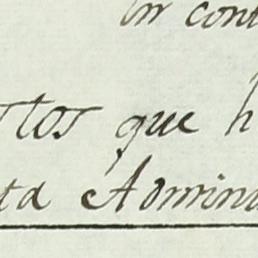 en cont
stos que h
ta Admin